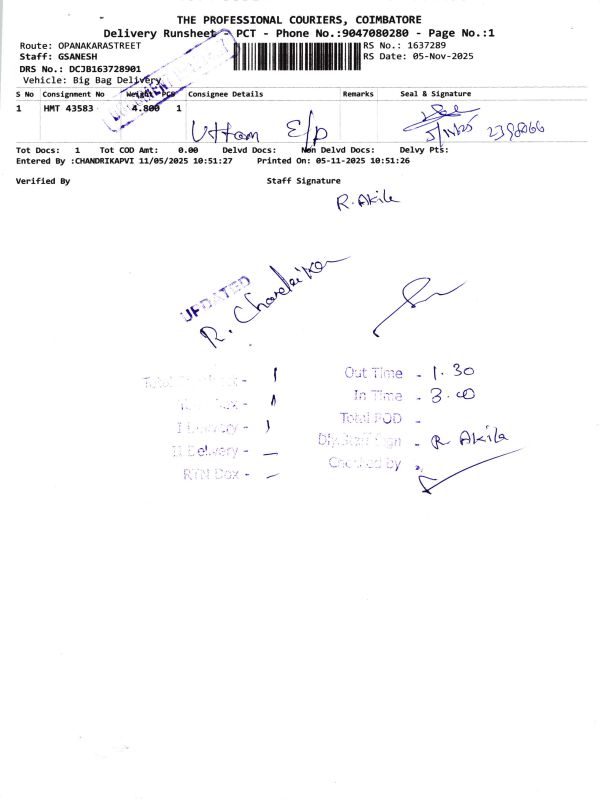 THE PROFESSIONAL COURIERS, COIMBATORE
Delivery Runsheet - PCT - Phone No.:9047080280 - Page No.:1
Route: OPANAKARASTREET RS No.: 1637289
Staff: GSANESH RS Date: 05-Nov-2025
DRS No.: DCJB163728901
Vehicle: Big Bag Delivery
S No Consignment No Weight PCS Consignee Details Remarks Seal & Signature
1 HMT 43583 4.800 1
Uttam E/p 5/11/25
Tot Docs: 1 Tot COD Amt: 0.00 Delvd Docs: Non Delvd Docs: Delvy Pts:
Entered By :CHANDRIKAPVI 11/05/2025 10:51:27 Printed On: 05-11-2025 10:51:26
Verified By Staff Signature
R. Akila
UPDATED
R. Chandrika
Out Time - 1.30
In Time - 3.00
I Delivery -
Total POD -
II Delivery - —
Sign - R Akila
RTN Dox - —
Checked by